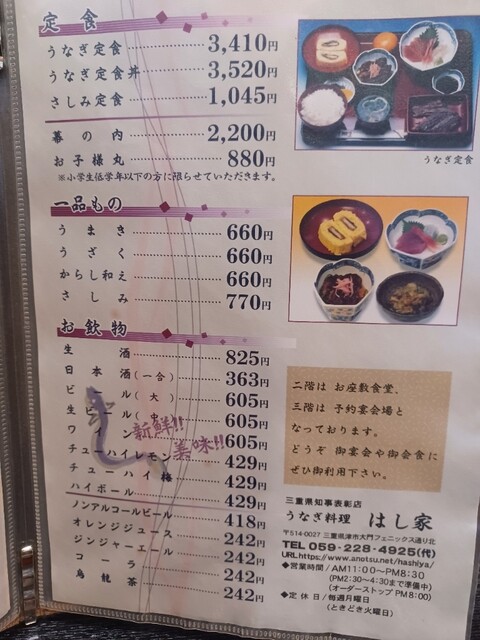 定食
うなぎ定食 3,410円
うなぎ定食丼 3,520円
さしみ定食 1,045円
幕の内 2,200円
お子様丸 880円
※小学生低学年以下の方に限らせていただきます。
うなぎ定食
一品もの
うまき 660円
うざく 660円
からし和え 660円
さしみ 770円
お飲物
生酒 825円
日本酒(一合) 363円
ビール(大) 605円
生ビール(中) 605円
ワイン 605円
新鮮!!
美味!!
チューハイレモン 429円
チューハイ梅 429円
ハイボール 429円
ノンアルコールビール 418円
オレンジジュース 242円
ジンジャーエール 242円
コーラ 242円
烏龍茶 242円
二階は お座敷食堂、
三階は 予約宴会場と
なっております。
どうぞ 御宴会や御会食に
ぜひ御利用下さい。
三重県知事表彰店
うなぎ料理 はし家
〒514-0027 三重県津市大門フェニックス通り北
TEL 059-228-4925(代)
URL https://www.anotsu.net/hashiya/
◆営業時間/AM11:00~PM8:30
(PM2:30~4:30まで準備中)
(オーダーストップ PM8:00)
◆定休日/毎週月曜日
(ときどき火曜日)